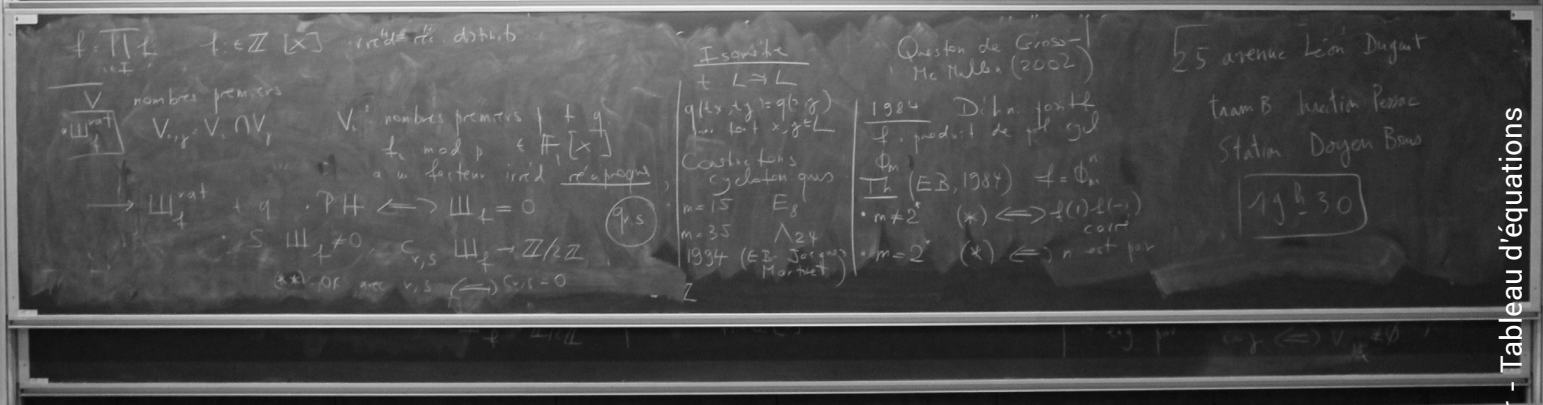 f = ∏ f_i   f_i ∈ ℤ[X]   distincts
i∈I
V   nombres premiers
Ш_f^rat   V_{i,j} = V_i ∩ V_j
V_i : nombres premiers p t q
f_i mod p ∈ 𝔽_p[X]
a un facteur irréd réciproque
→ Ш_f^rat + q · PH ⟺ Ш_f = 0
· S Ш_f ≠ 0   c_{r,s} Ш_f → ℤ/2ℤ
(**) OK avec r,s ⟺ c_{r,s} = 0
q, r, s
Isométrie
t L ⥲ L
q(tx,ty) = q(x,y)
pour tout x,y ∈ L
Constructions
cyclotomiques
m = 15   E_8
m = 35   Λ_24
1994 (EB - Jacques
Martinet)
Question de Gross-
Mc Mullen (2002)
1984   Défin. positif
f. produit de pol cycl
Φ_m
Th (EB, 1984)   f = Φ_m^n
• m ≠ 2^•   (*) ⟺ f(1) f(-1)
carré
• m = 2^•   (*) ⟺ n est pair
25 avenue Léon Duguit
tram B   direction Pessac
Station   Doyen Brus
19h30
ℤ/2ℤ
⟺ V ≠ ∅
- Tableau d'équations